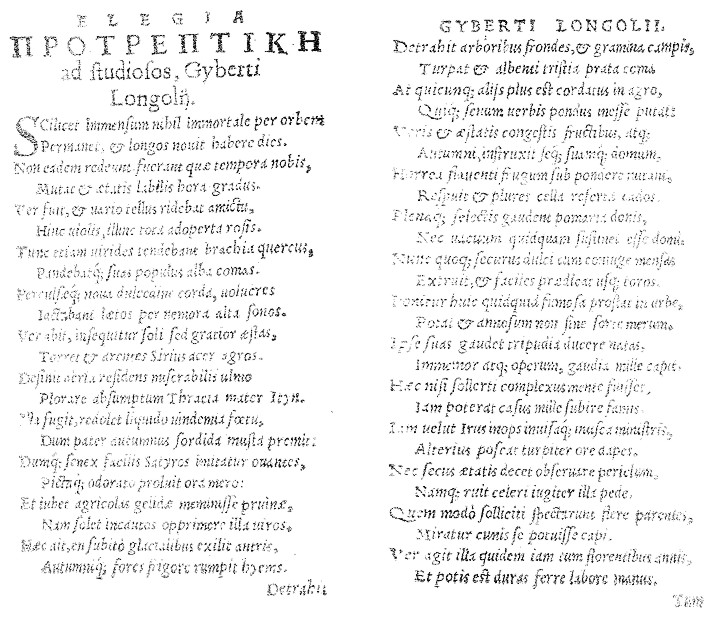 ELEGIA
ΠΡΟΤΡΕΠΤΙΚΗ
ad studiosos, Gyberti
Longolij.
SCilicet immensum nihil immortale per orbem
Permanet, & longos nouit habere dies.
Non eadem redeunt fuerant quæ tempora nobis,
Mutat & ætatis labilis hora gradus.
Ver fuit, & uario tellus ridebat amictu,
Hinc uiolis, illinc tota adoperta rosis.
Tunc etiam uirides tendebant brachia quercus,
Pandebatq́; suas populus alba comas.
Perculsæq́; noua dulcedine corda, uolucres
Iactabant lætos per nemora alta sonos.
Ver abit, insequitur soli sed gratior æstas,
Torret & arentes Sirius acer agros.
Desinit aëria residens miserabilis ulmo
Plorare absumptum Thracia mater Ityn.
Illa fugit, redolet liquido uindemia fœtu,
Dum pater autumnus sordida musta premit:
Dumq́; senex facilis Satyros imitatur ouantes,
Pictaq́; odorato proluit ora mero:
Et iubet agricolas gelidæ meminisse pruinæ,
Nam solet incautos opprimere illa uiros.
Hæc ait, en subitò glacialibus exilit antris,
Autumniq́; fores frigore rumpit hyems.
Detrahit
GYBERTI LONGOLII.
Detrahit arboribus frondes, & gramina campis,
Turpat & albenti tristia prata coma.
At quicunq; alijs plus est cordatus in agro,
Quiq; senum uerbis pondus inesse putat:
Veris & æstatis congestis fructibus, atq;
Autumni, instruxit seq́; suamq́; domum.
Horrea flauenti frugum sub pondere
Respuit & plures cella referta cados.
Plenaq; selectis gaudent pomaria donis,
Nec uacuum quidquam sustinet esse domi.
Nunc quoq; securus dulci cum coniuge mensas
Extruit, & faciles prædicat usq; toros.
Ponitur huic quidquid fumosa prostat in urbe,
Potat & annosum non sine sorte merum.
Ipse suas gaudet tripudia ducere natas,
Immemor atq; operum, gaudia mille capit.
Hæc nisi sollerti complexus mente fuisset,
Iam poterat casus mille subire famis.
Iam uelut Irus inops inuisaq; musca ministris,
Alterius poscat turpiter ore dapes.
Nec secus ætatis decet obseruare periclum,
Namq; ruit celeri iugiter illa pede.
Quem modò solliciti spectarunt flere parentes,
Miratur cunis se potuisse capi.
Ver agit illa quidem iam cum florentibus annis,
Et potis est duras ferre labore manus.
Tum